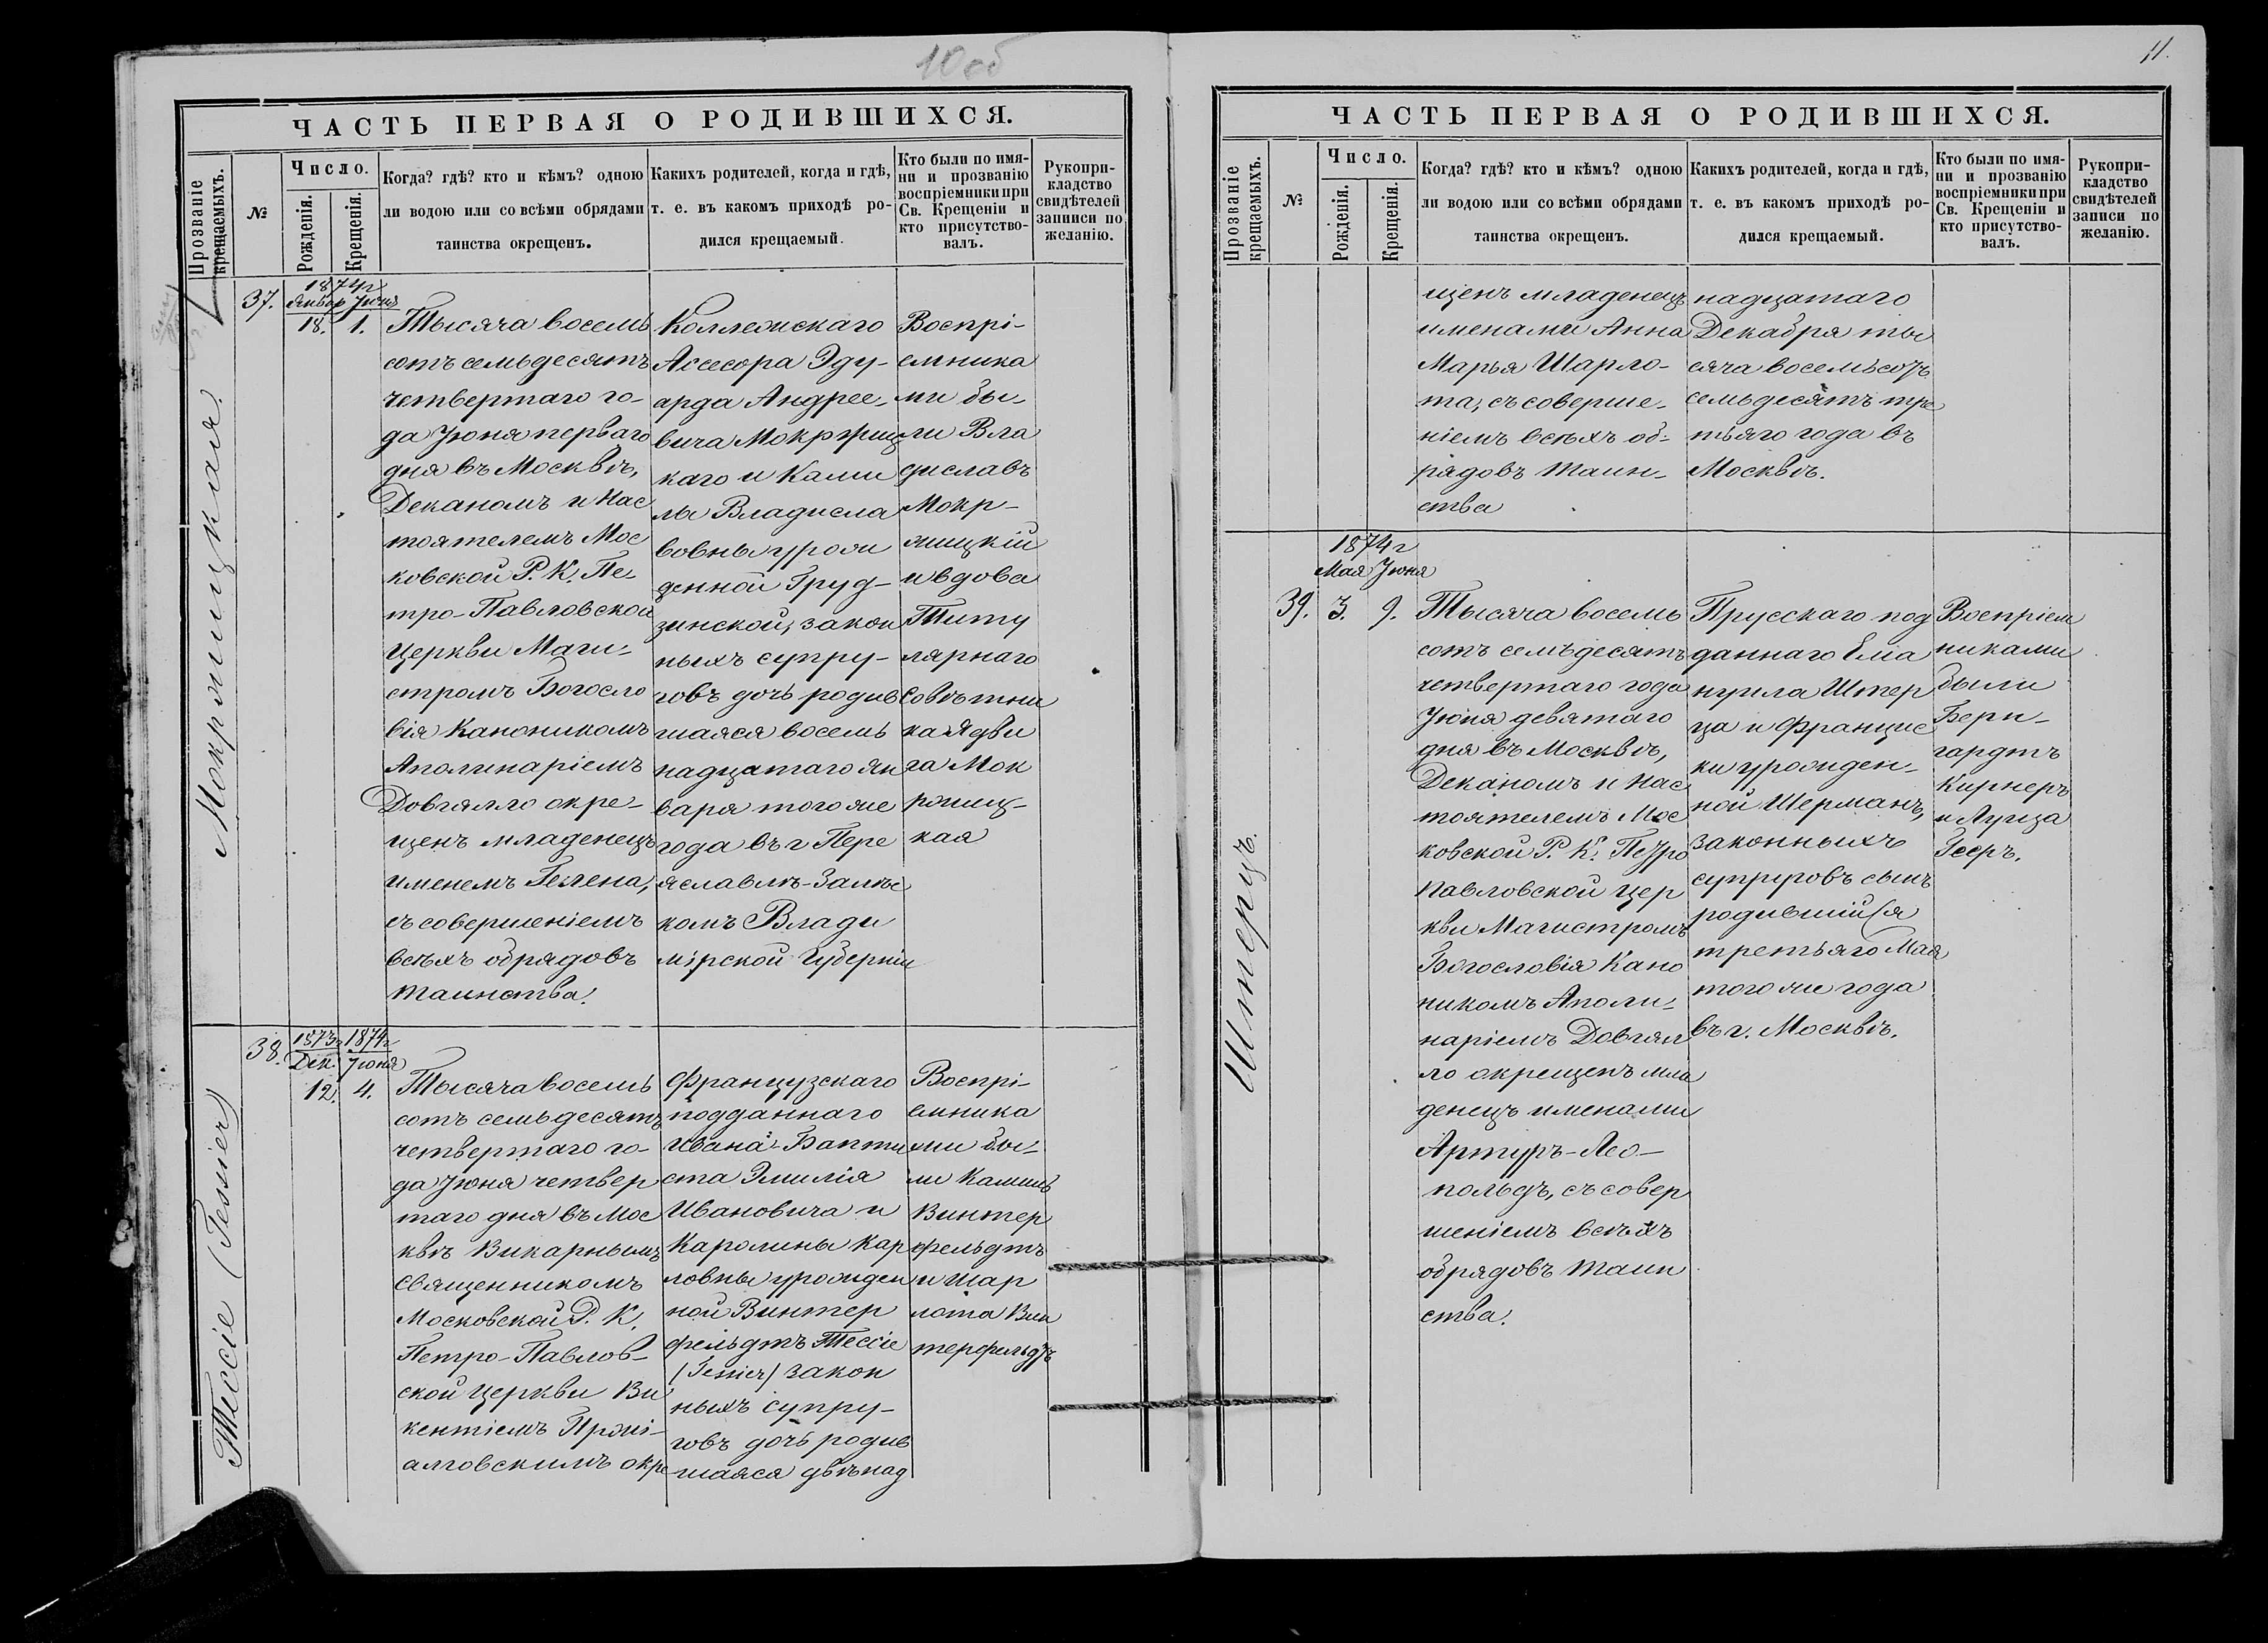 10 об
ЧАСТЬ ПЕРВАЯ О РОДИВШИХСЯ.
Прозваніе крещаемыхъ.
№
Число.
Рожденія.
Крещенія.
Когда? гдѣ? кто и кѣмъ? одною
ли водою или со всѣми обрядами
таинства окрещенъ.
Какихъ родителей, когда и гдѣ,
т. е. въ какомъ приходѣ ро-
дился крещаемый.
Кто были по имя-
ни и прозванію
воспріемники при
Св. Крещеніи и
кто присутство-
валъ.
Рукопри-
кладство
свидѣтелей
записи по
желанію.
Мокржицкая.
37.
1874г
Январ Іюня
18. 1.
Тысяча восемь
сотъ семьдесятъ
четвертаго го-
да Іюня перваго
дня въ Москвѣ,
Деканомъ и Нас
тоятелемъ Мос
ковской Р. К. Пе-
тро-Павловской
Церкви Маги-
стромъ Богосло
вія Каноникомъ
Аполинаріемъ
Довгялло окре-
щенъ младенецъ
именемъ Гелена,
съ совершеніемъ
всѣхъ обрядовъ
таинства.
Коллежскаго
Ассесора Эду-
арда Андрее-
вича Мокржиц
каго и Ками
лы Владисла
вовны урож
денной Груд-
зинской, закон
ныхъ супру-
говъ дочь родив
шаяся восемь
надцатаго Ян
варя того же
года въ г Пере
яславлѣ-Залѣс
комъ Влади
мірской Губерніи
Воспрі-
емника
ми бы-
ли Вла
диславъ
Мокр-
жицкій
и вдова
Титу
лярнаго
Совѣтни
ка Ядви
га Мок
ржиц-
кая
Тессіе (Tessier)
38.
1873г 1874г
Дек. Іюня
12. 4.
Тысяча восемь
сотъ семьдесятъ
четвертаго го-
да Іюня четвер
таго дня въ Мос
квѣ Викарнымъ
Священникомъ
Московской Р. К.
Петро-Павлов-
ской Церкви Ви
кентіемъ Пржі-
алговскимъ окре
Французскаго
подданнаго
Ивана-Бапти
ста Эмилія
Ивановича и
Каролины Кар
ловны урожден
ной Винтер
фельдтъ Тессіе
(Tessier) закон
ныхъ супру-
говъ дочь родив
шаяся двѣнад
Воспрі-
емника
ми бы-
ли Камилъ
Винтер
фельдтъ
и Шар
лота Вин
терфельдтъ
11.
ЧАСТЬ ПЕРВАЯ О РОДИВШИХСЯ.
Прозваніе крещаемыхъ.
№
Число.
Рожденія.
Крещенія.
Когда? гдѣ? кто и кѣмъ? одною
ли водою или со всѣми обрядами
таинства окрещенъ.
Какихъ родителей, когда и гдѣ,
т. е. въ какомъ приходѣ ро-
дился крещаемый.
Кто были по имя-
ни и прозванію
воспріемники при
Св. Крещеніи и
кто присутство-
валъ.
Рукопри-
кладство
свидѣтелей
записи по
желанію.
щенъ младенецъ
именами Анна
Марья Шарло-
та, съ соверше-
ніемъ всѣхъ об-
рядовъ таин-
ства
надцатаго
Декабря ты
сяча восемьсотъ
семьдесятъ тре
тьяго года въ
Москвѣ.
Штерцъ.
1874г
Мая Іюня
39. 3. 9.
Тысяча восемь
сотъ семьдесятъ
четвертаго года
Іюня девятаго
дня въ Москвѣ,
Деканомъ и Нас
тоятелемъ Мос
ковской Р. К. Петро
Павловской Цер
кви Магистромъ
Богословія Кано
никомъ Аполи-
наріемъ Довгял
ло окрещенъ мла
денецъ именами
Артуръ-Лео-
польдъ, съ совер
шеніемъ всѣхъ
обрядовъ таин
ства.
Прусскаго под
даннаго Ема
нуила Штер
ца и Францис
ки урожден-
ной Шерманъ,
законныхъ
супруговъ сынъ
родившійся
третьяго Мая
того же года
въ г. Москвѣ.
Воспріем
никами
были
Берн-
гардтъ
Кирнеръ
и Луиза
Гееръ.